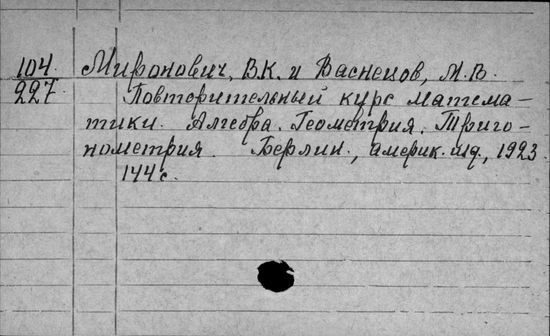 104
227
Миронович, В.К. и Васнецов, М.В.
Повторительный курс матема-
тики. Алгебра. Геометрия. Триго-
нометрия. Берлин., америк. изд., 1923
144 с.